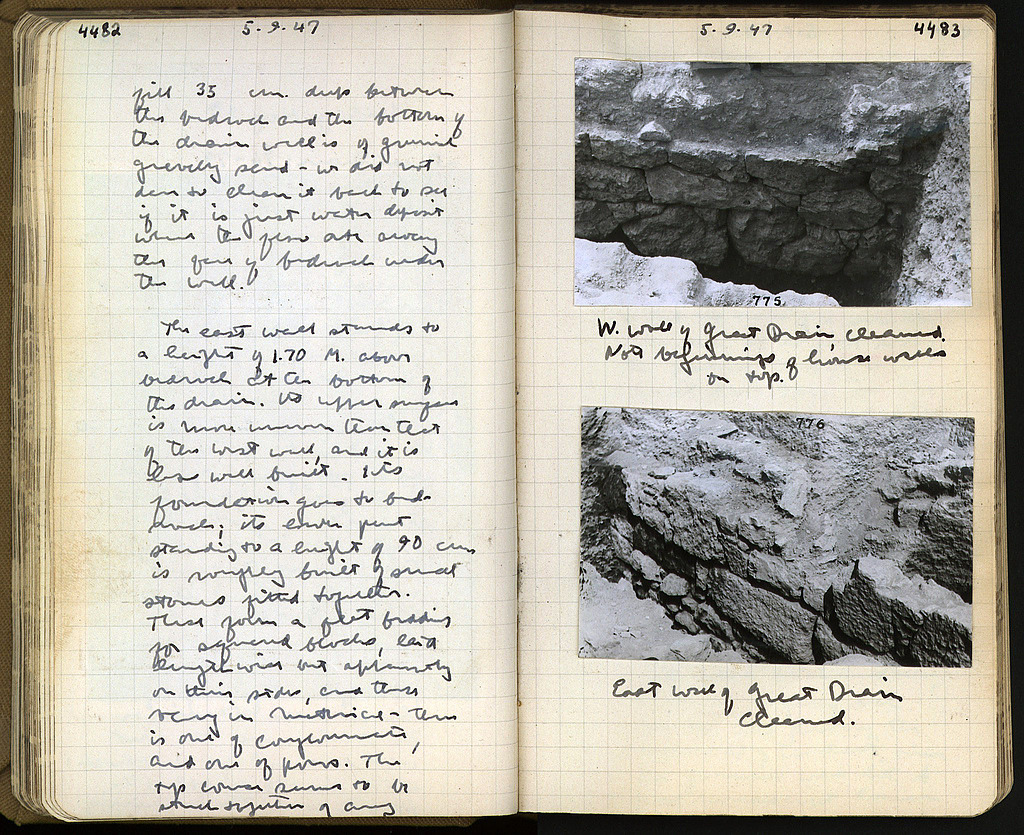 4482
5-9-47
fill 35 cm. deep between
the bedrock and the bottom of
the drain wall is of
gravelly sand - we did not
dare to clean it back to see
if it is just water deposit
where the flow ate away
the face of bedrock under
the wall.
The east wall stands to
a height of 1.70 M. above
bedrock at the bottom of
the drain. Its upper surface
is more uneven than that
of the west wall, and it is
less well built. Its
foundation goes to bed-
rock; its lower part
standing to a height of 90 cms
is roughly built of small
stones fitted together.
These form a flat bedding
for squared blocks, laid
lengthwise but apparently
on their sides, and these
vary in material - there
is one of conglomerate,
and one of poros. The
top course seems to be
stuck together of any
5-9-47
4483
775
W. wall of Great Drain cleaned.
Note beginnings of house walls
on top.
776
East wall of Great Drain
cleaned.